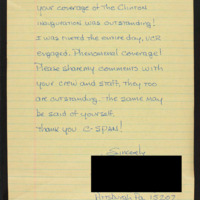 your coverage of the Clinton
inauguration was outstanding!
I was riveted the entire day, VCR
engaged. Phenomenal coverage!
Please share my comments with
your crew and staff, they too
are outstanding. the same may
be said of yourself.
Thank you C-SPAN!
Sincerely
Pittsburgh Pa 15207